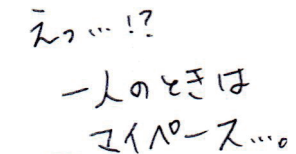 えっ…!?
一人のときは
マイペース…。